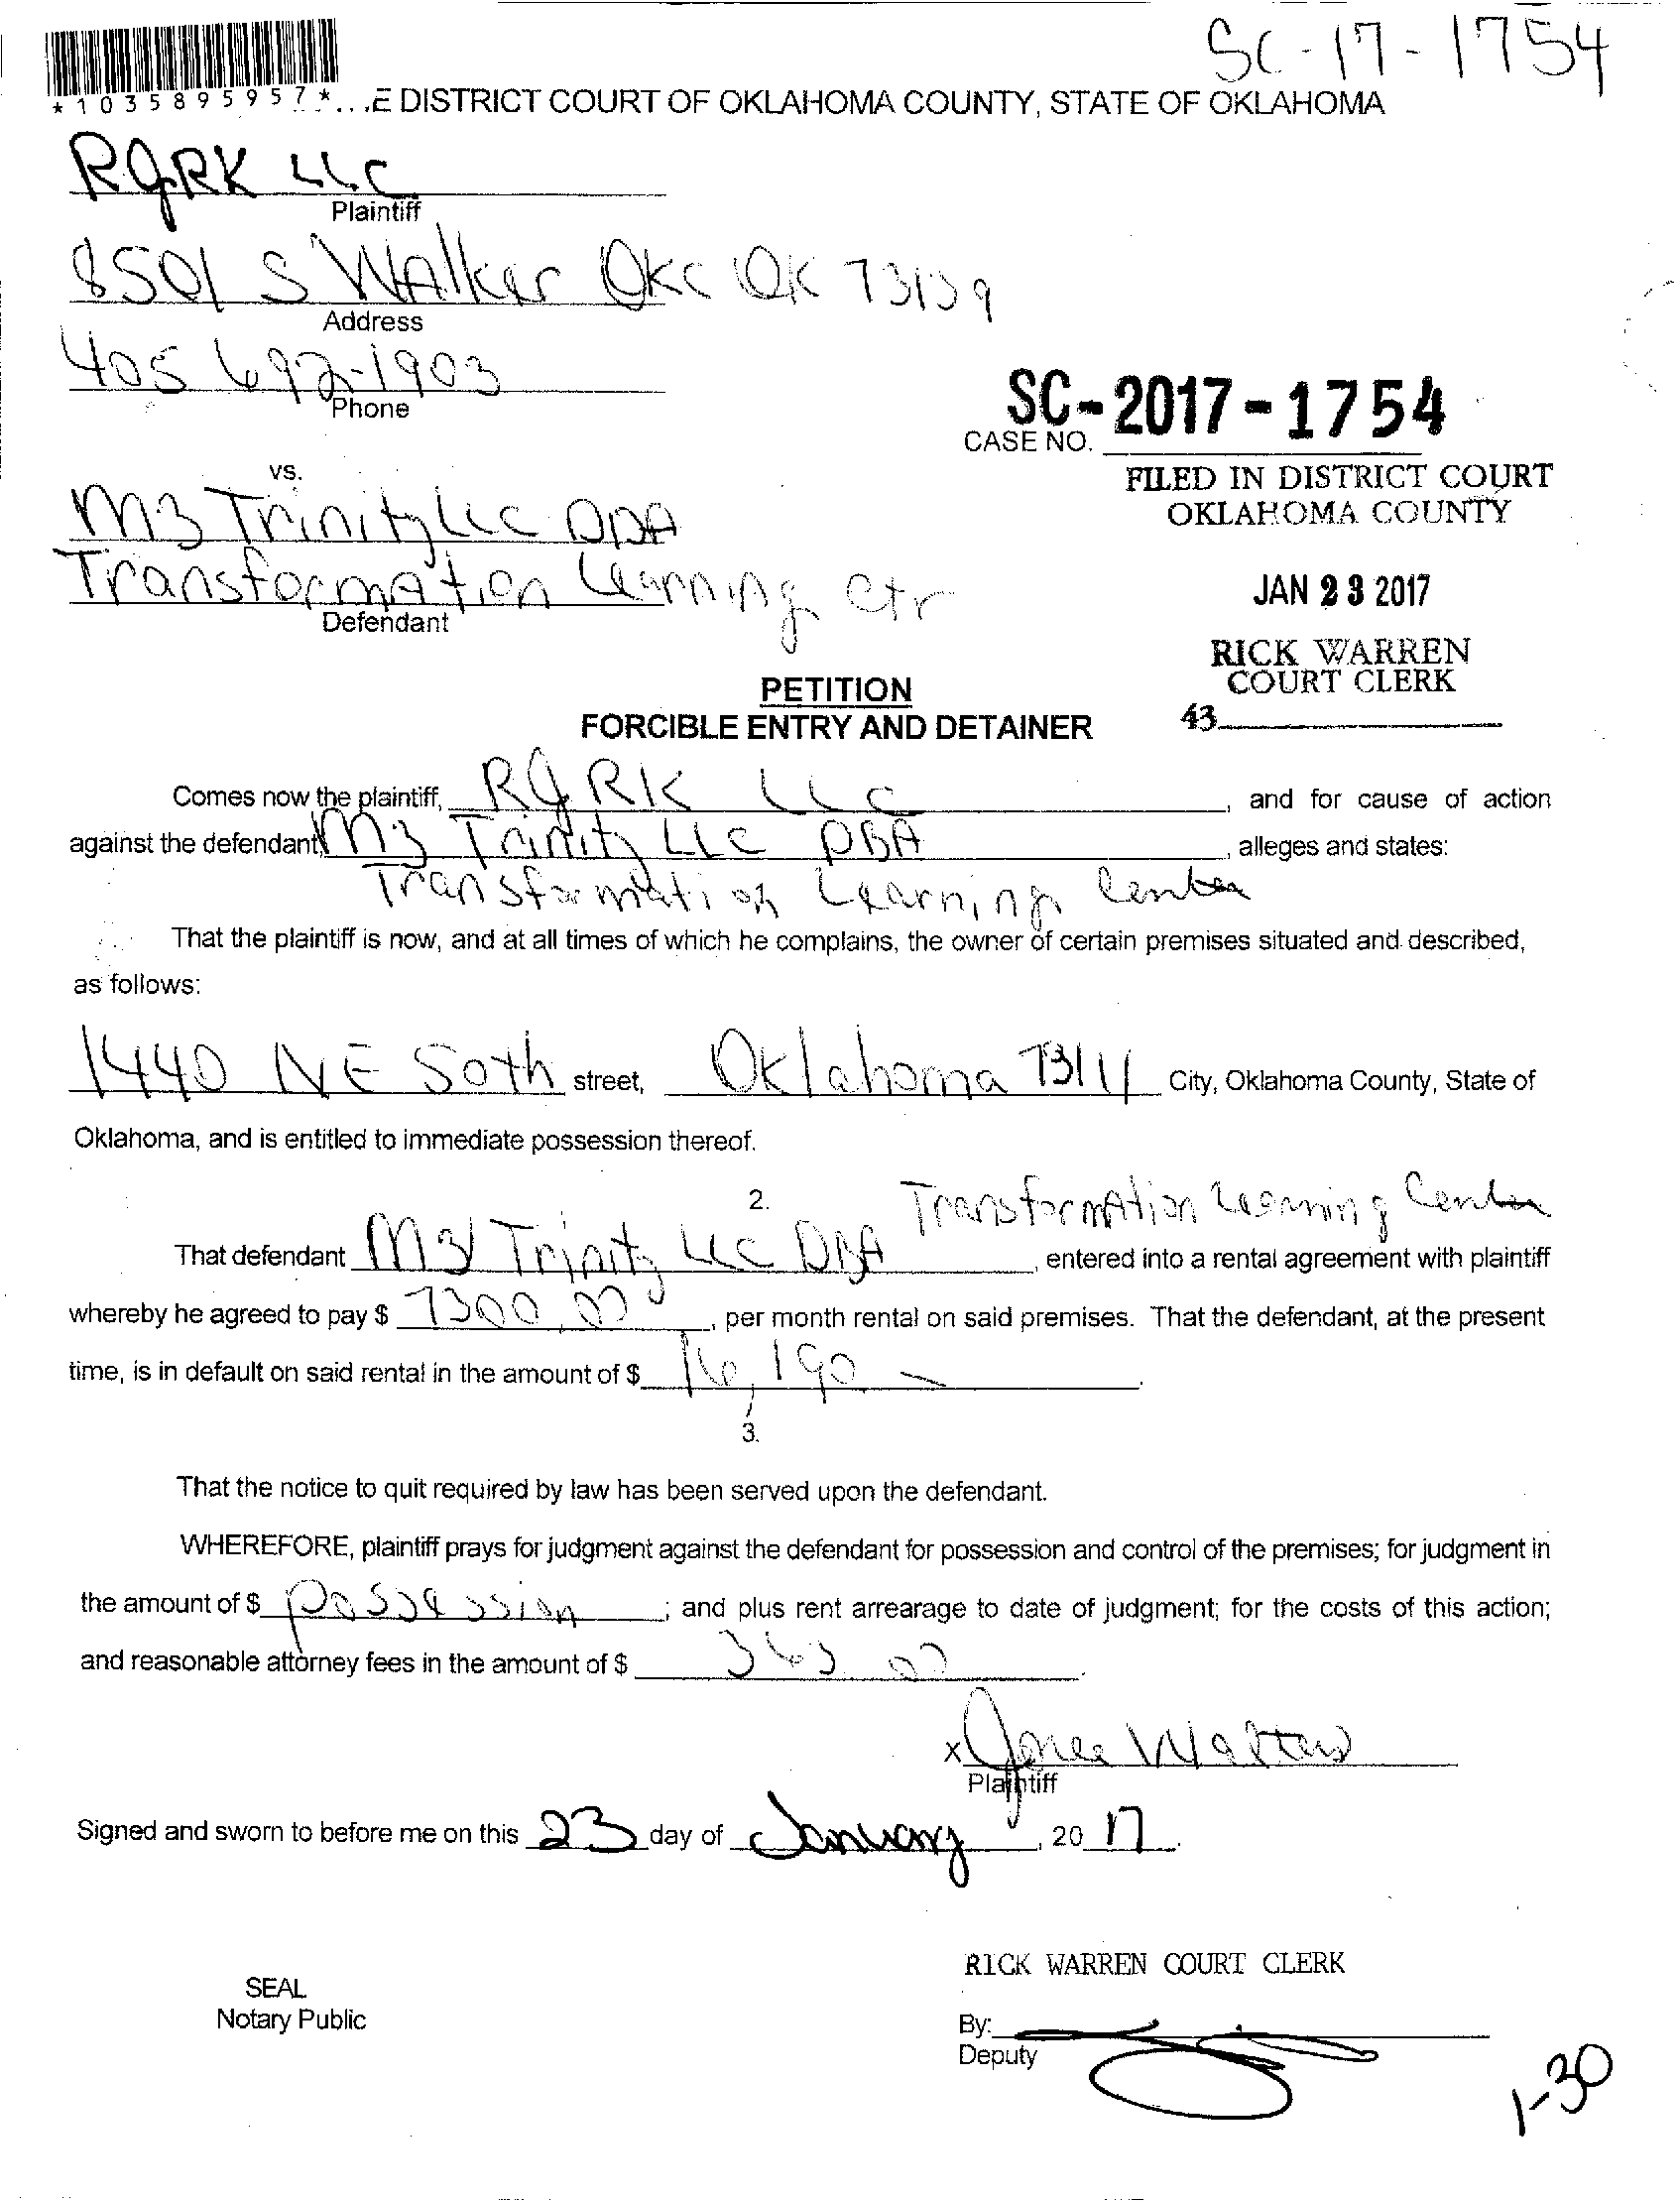 SC-17-1754
*1035895957*...E DISTRICT COURT OF OKLAHOMA COUNTY, STATE OF OKLAHOMA
RJRK LLC
Plaintiff
8501 S Walker OKC OK 73139
Address
405 692-1903
Phone
SC-2017-1754
CASE NO.
vs.
FILED IN DISTRICT COURT
OKLAHOMA COUNTY
M3 Trinity LLC DBA
Transformation Learning Ctr
Defendant
JAN 23 2017
RICK WARREN
COURT CLERK
43
PETITION
FORCIBLE ENTRY AND DETAINER
Comes now the plaintiff, RJRK LLC, and for cause of action
against the defendant, M3 Trinity LLC DBA, alleges and states:
Transformation Learning Center
That the plaintiff is now, and at all times of which he complains, the owner of certain premises situated and described,
as follows:
1440 NE 50th street, Oklahoma 73111 City, Oklahoma County, State of
Oklahoma, and is entitled to immediate possession thereof.
2.
Transformation Learning Center
That defendant M3 Trinity LLC DBA, entered into a rental agreement with plaintiff
whereby he agreed to pay $ 7300.00, per month rental on said premises. That the defendant, at the present
time, is in default on said rental in the amount of $ 16,190 —.
3.
That the notice to quit required by law has been served upon the defendant.
WHEREFORE, plaintiff prays for judgment against the defendant for possession and control of the premises; for judgment in
the amount of $ possession; and plus rent arrearage to date of judgment; for the costs of this action;
and reasonable attorney fees in the amount of $ 363.00.
x Watters
Plaintiff
Signed and sworn to before me on this 23 day of January, 20 17.
RICK WARREN COURT CLERK
SEAL
Notary Public
By:
Deputy
1-30